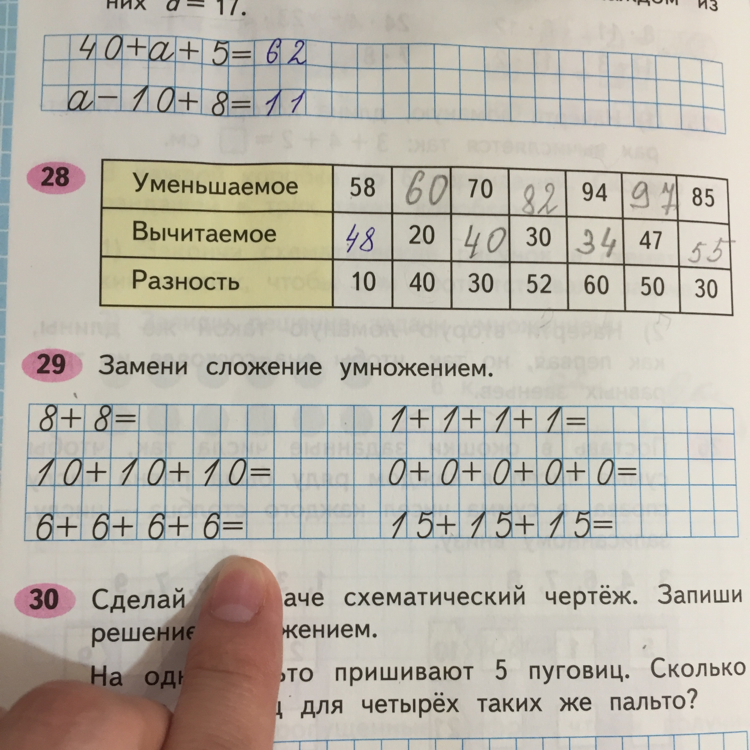 них a = 17.
из
40+a+5=62
a-10+8=11
28
Уменьшаемое 58 60 70 82 94 97 85
Вычитаемое 48 20 40 30 34 47 55
Разность 10 40 30 52 60 50 30
29 Замени сложение умножением.
8+8= 1+1+1+1=
10+10+10= 0+0+0+0+0=
6+6+6+6= 15+15+15=
30 Сделай схематический чертёж. Запиши
решение
На пришивают 5 пуговиц. Сколько
для четырёх таких же пальто?